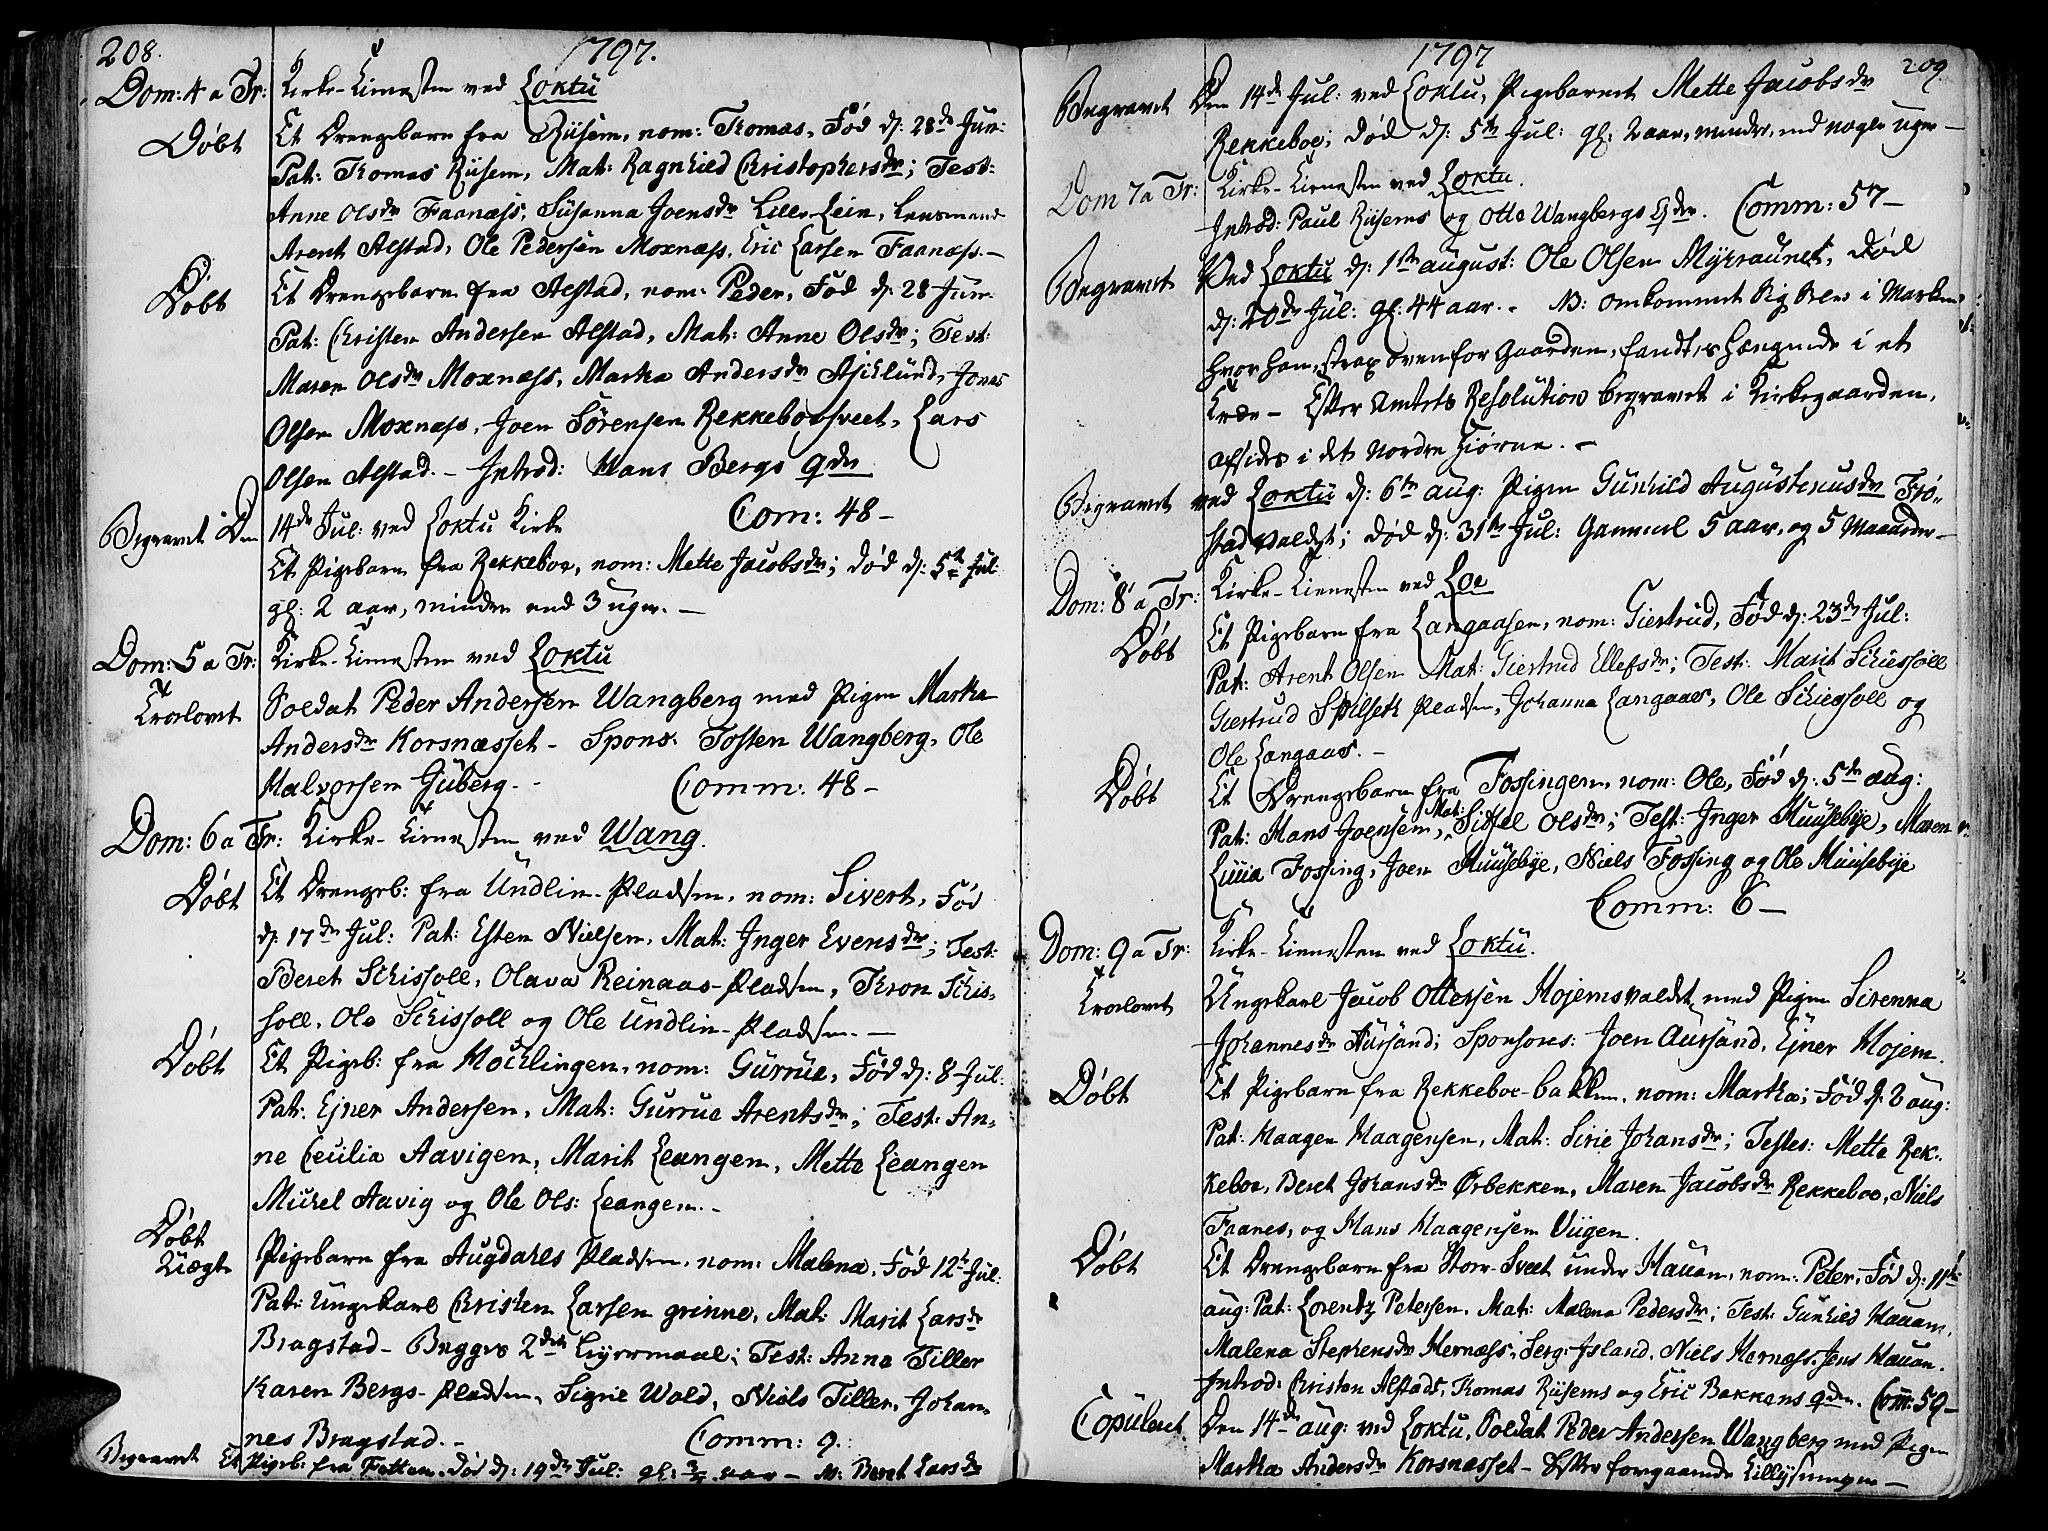 208. 1797.
Dom: 4 a Tr: Kirke-Tienesten ved Loktu
Døbt Et Drengebarn fra Riisem, nom: Thomas, Fød d: 28de Jun:
Pat: Thomas Riisem, Mat: Ragnhild Christophersdr; Test:
Anne Olsdr Faanæss, Susanna Joensdr Lille Lein, Lensmand
Arent Alstad, Ole Pedersen Moxnæss, Eric Larsen Faanæss.—
Døbt Et Drengebarn fra Alstad, nom: Peder, Fød d: 28 Jun:
Pat: Christen Andersen Alstad, Mat: Anne Olsdr; Test:
Maren Olsdr Moxnæss, Martha Andersdr Asklund, Jonas
Olsen Moxnæss, Joen Sørensen Rekkeboesveet, Lars
Olsen Alstad.— Introd: Hans Bergs qde
Begravet Den 14de Jul: ved Loktu Kirke Com: 48—
Et Pigebarn fra Rekkeboe, nom: Mette Jacobsdr; død d: 5te Jul:
gl: 2 aar, mindre end 3 uger.—
Dom: 5 a Tr: Kirke-Tienesten ved Loktu
Trovlovet Soldat Peder Andersen Wangberg med Pigen Martha
Andersdr Korsnæsset— Spons: Tosten Wangberg, Ole
Halvorsen Juberg.— Comm: 48—
Dom: 6 a Tr: Kirke-Tienesten ved Wang.
Døbt Et Drengeb: fra Undlin-Pladsen, nom: Sivert, Fød
d: 17de Jul: Pat: Esten Nielsen, Mat: Inger Evensdr; Test:
Beret Schissoll, Olava Reinaas-Pladsen, Thron Schis-
soll, Ole Schissoll og Ole Undlin-Pladsen.—
Døbt Et Pigeb: fra Hocklingen, nom: Gurrue, Fød d: 8 Jul:
Pat: Ejner Andersen, Mat: Gurrue Arentsdr; Test: An-
ne Cecilia Aavigen, Marit Leangen, Mette Leangen
Mickel Aavig og Ole Ols: Leangen.—
Døbt
Uægte Pigebarn fra Augdahls Pladsen, nom: Malena, Fød 12te Jul:
Pat: Ungekarl Christen Larsen grinne, Mat: Marit Larsdr
Bragstad— Begges 2det Leyermaal; Test: Anna Tiller
Karen Bergs-Pladsen, Sigrie Wold, Niels Tiller, Johan-
nes Bragstad.— Comm: 9.
Begravet Et Pigeb: fra Fætten, død d: 19de Jul: gl: 3/4 aar— N: Beret Larsdr
1797 209
Begravet Den 14de Jul: ved Loktu, Pigebarnet Mette Jacobsdr
Rekkeboe; død d: 5te Jul: gl: 2 aar, mindre, end nogle uger—
Dom 7 a Tr: Kirke-Tienesten ved Loktu.
Introd: Paul Riisems og Otte Wangbergs qdr. Comm: 57—
Begravet Ved Loktu d: 1ste august: Ole Olsen Myhraunet, død
d: 20de Jul: gl: 44 aar.— N: omkommet sig selv i Marken
hvor han, strax ovenfor Gaarden, fandtes hængende i et
Træe— Efter Amtets Resolution begravet i Kirkegaarden,
afsides i det Nordre Hiørne.—
Begravet ved Loktu d: 6te aug: Pigen Gunhild Augustinusdr Frø-
stadvaldet; død d: 31te Jul: Gammel 5 aar, og 5 Maaneder—
Dom: 8 a Tr: Kirke-Tienesten ved Loe
Døbt Et Pigebarn fra Langaasen, nom: Giertrud, Fød d: 23de Jul:
Pat: Arent Olsen Mat: Giertrud Ellefsdr; Test: Marit Schiessoll
Giertrud Spilseth Pladsen, Johanna Langaas, Ole Schiessoll og
Ole Langaas.—
Døbt Et Drengebarn fra Fossingen, nom: Ole, Fød d: 5te aug:
Pat: Hans Joensen, Mat: Sissel Olsdr; Test: Inger Muusebye, Maren
Lucia Fossing, Joen Muusebye, Niels Fossing og Ole Muusebye
Comm: 6—
Dom: 9 a Tr: Kirke-Tienesten ved Loktu.
Trovlovet Ungekarl Jacob Ottersen Hojemsvaldet med Pigen Sirenna
Johannesdr Aursand; Sponsores: Joen Aursand, Ejner Hojem.
Døbt Et Pigebarn fra Rekkeboe-bakken, nom: Martha; Fød d: 2 aug:
Pat: Haagen Haagensen, Mat: Sirie Johansdr; Testes: Mette Rek-
keboe, Beret Johansdr Ørbekken, Maren Jacobsdr Rekkeboe, Niels
Faanes, og Hans Haagensen Viigen.
Døbt Et Drengebarn fra Storr-Sveet under Hauan, nom: Peter, Fød d: 11te
aug: Pat: Lorentz Petersen, Mat: Malena Pedersdr; Test: Gunhild Hauan,
Malena Stephensdr Hernæss, Serg: Island, Niels Hernæss, Jens Hauan.
Introd: Christen Alstads, Thomas Riisems og Eric Bakkens qder. Com: 59—
Copuleret Den 14de aug: ved Loktu, Soldat Peder Andersen Wangberg med Pigen
Martha Andersdr Korsnæsset— Efter foregaaende Tillysninger—